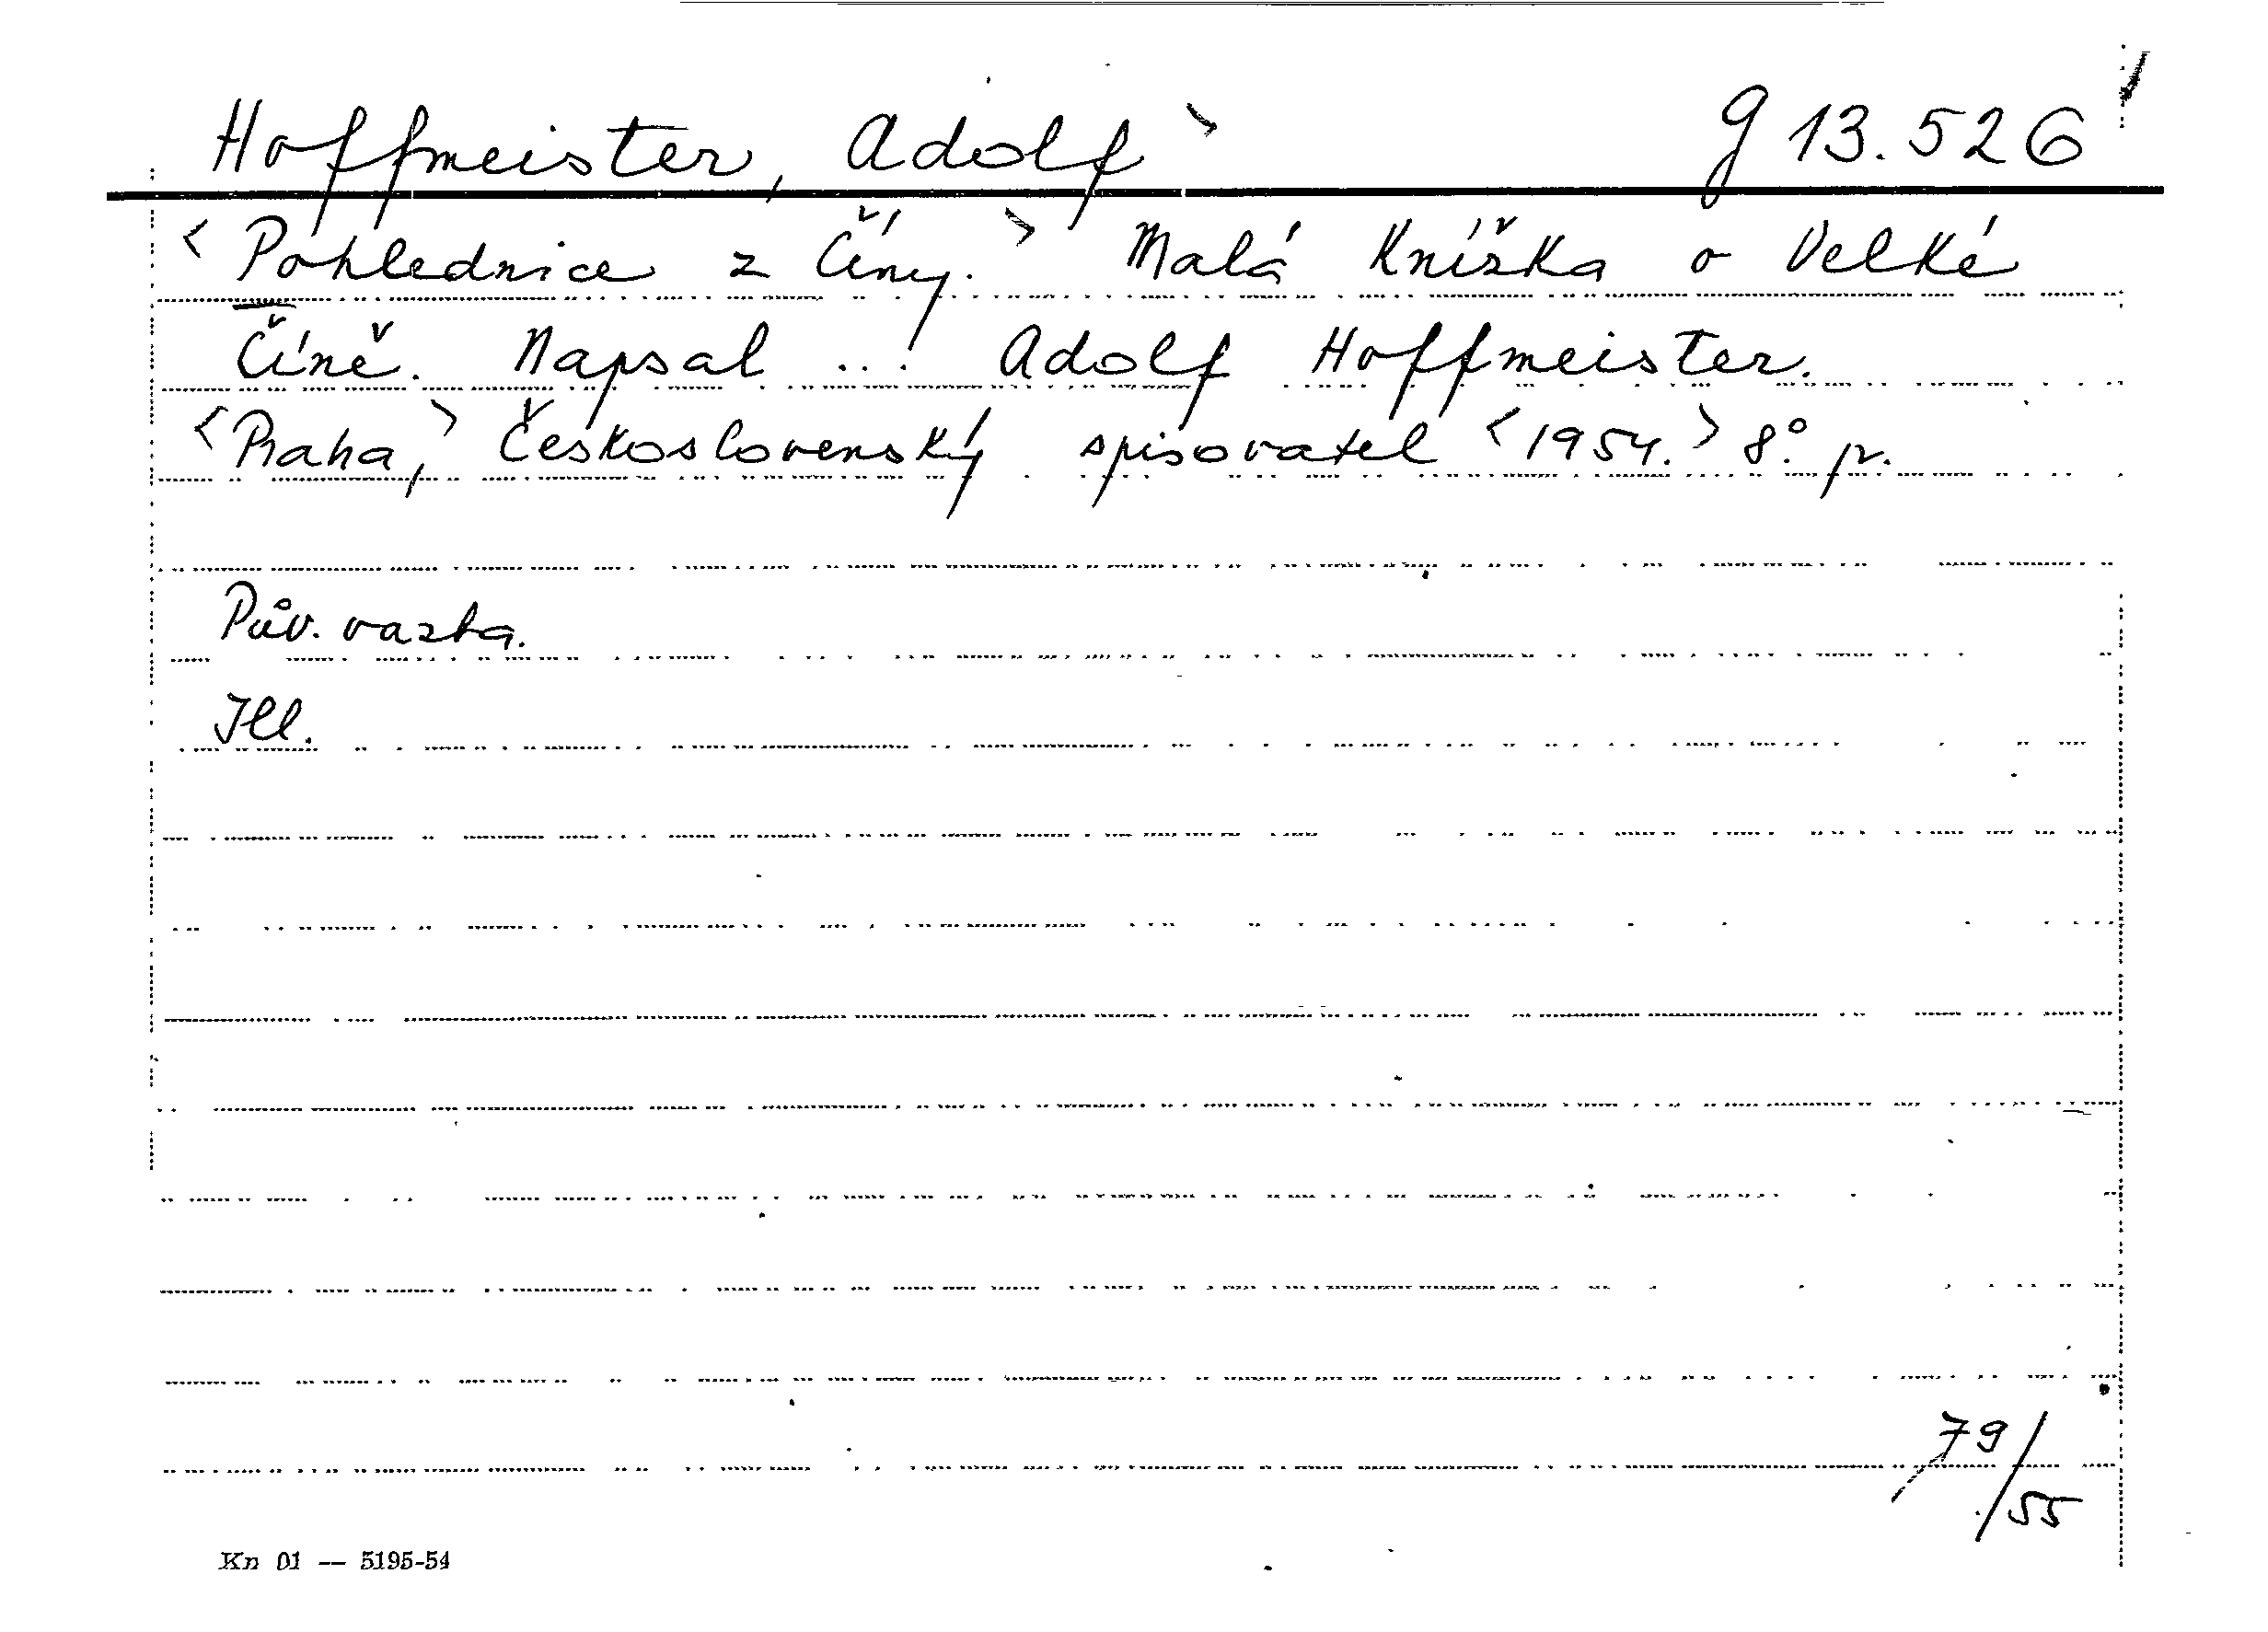 Hoffmeister, Adolf > g 13.526
<Pohlednice z Číny.> Malá Knížka o Velké
Číně. Napsal ... Adolf Hoffmeister.
<Praha,> Československý spisovatel <1954.> 8° pr.
Pův. vazba.
Ill.
79/55
Kn 01 — 5195-54